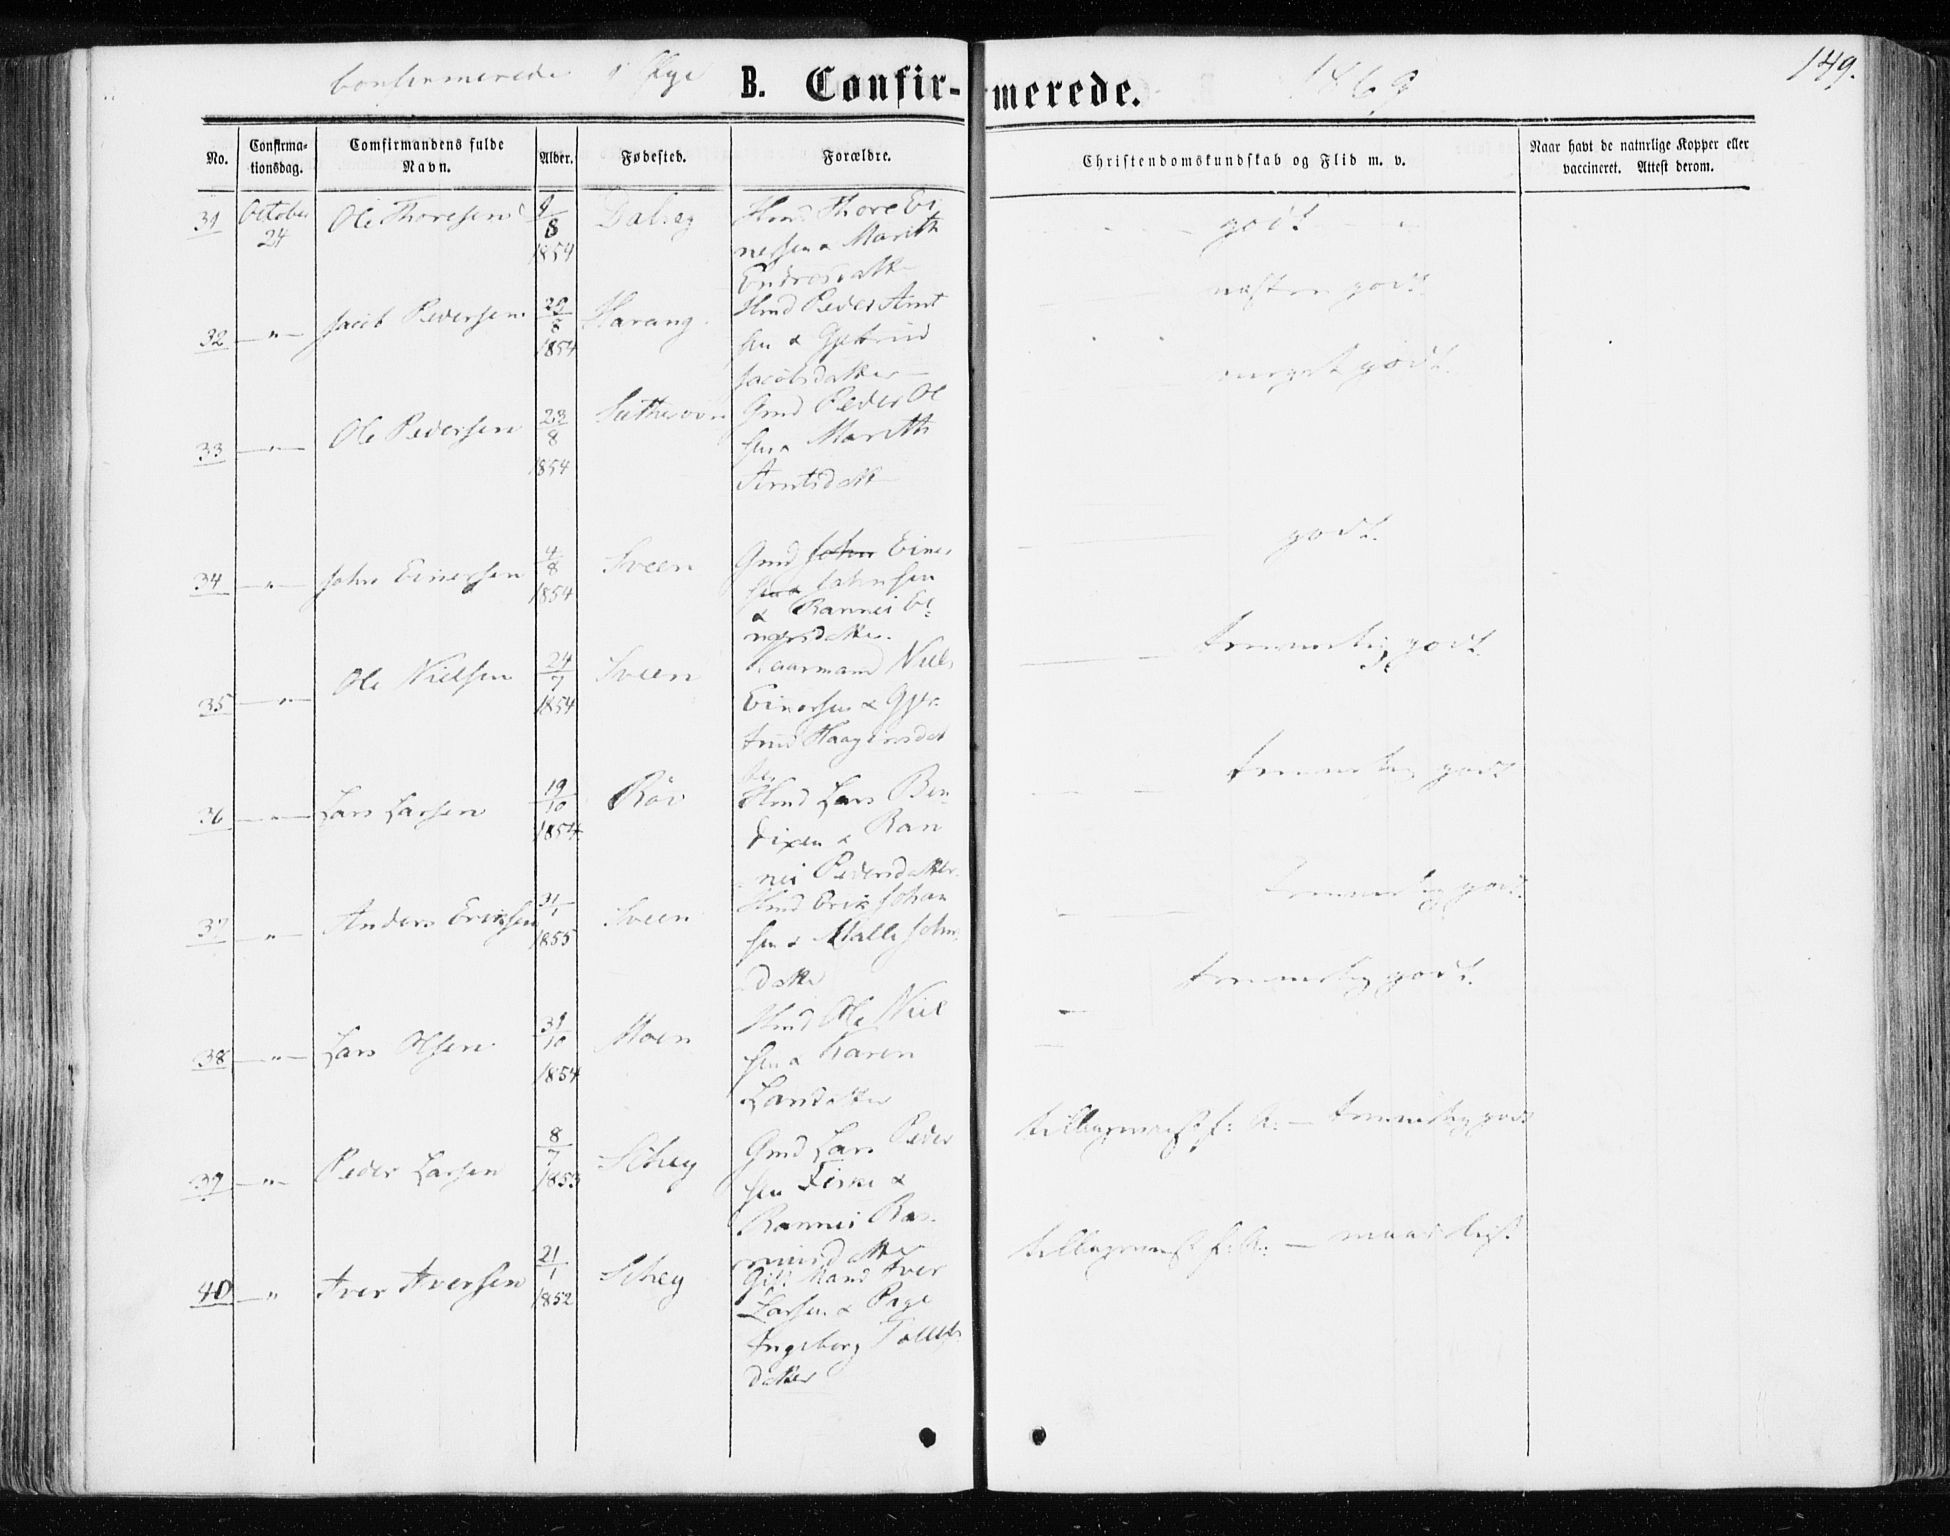 Confirmerede i
B. Confirmerede.
1869
149.
No.
Confirma-
tionsdag.
Comfirmandens fulde
Navn.
Alder.
Fødested.
Forældre.
Christendomskundskab og Flid m. v.
Naar havt de naturlige Kopper eller
vaccineret. Attest derom.
31 October 24 Ole Thoresen 9/8 1854 Dalseg Hmd Thore Ei
nersen & Marith
Endresdatter
godt
32 -"- Jacob Pedersen 20/8 1854 Harang Hmd Peder Arnt
sen & Gjertrud
Jacobsdatter
næsten godt
33 -"- Ole Pedersen 23/8 1854 Gmd Peder Ol
sen & Marith
Arntsdatt
meget godt
34 -"- John Einersen 4/8 1854 Sveen Gmd John Einer
sen & Johnsen
& Rannei Ei-
nersdatter
godt
35 -"- Ole Nielsen 24/7 1854 Sveen Niels
Einersen & Gjer-
trud Haagensdat
ter
temmelig godt
36 -"- Lars Larsen 19/10 1854 Röv Hmd Lars Ben-
dixen & Ran
nei Pedersdatter
temmelig godt
37 -"- Anders Eriksen 31/1 1855 Sveen Hmd Erik Johan
sen & Malli John
datter
temmelig godt
38 -"- Lars Olsen 31/10 1854 Moen Hmd Ole Niel
sen & Karen
Larsdatter
temmelig godt
39 -"- Peder Larsen 8/7 1853 Schey Gmd Lars Peder
sen &
Rannei Ras-
musdatter
temmelig godt
40 -"- Iver Iversen 21/1 1852 Schey Gift Mand Iver
Larsen & Pige
Ingeborg Tollefs
datter
maadeligt